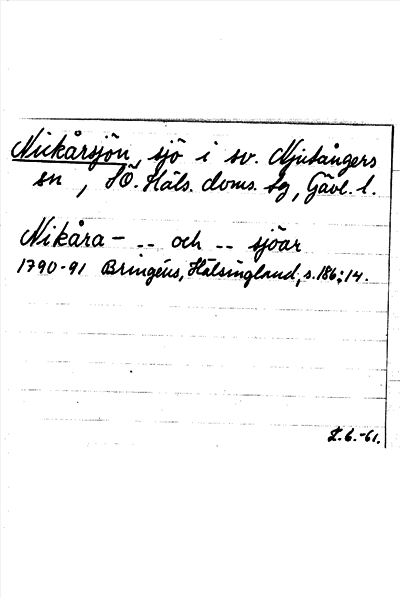 Nickårsjön, sjö i sv. Njutångers
sn, SÖ. Häls. doms. sg, Gävl. l.
Nikåra- -- och -- sjöar
1790-91 Bringéus, Hälsingland, s. 186:14.
L.b.-61.